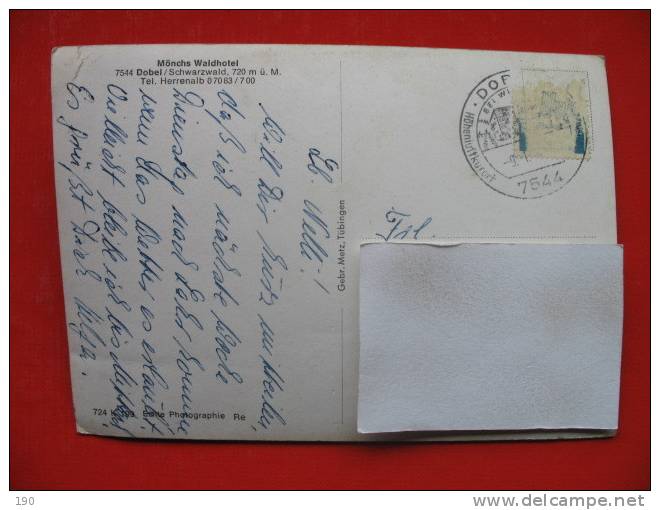 Mönchs Waldhotel
7544 Dobel/Schwarzwald, 720 m ü. M.
Tel. Herrenalb 07083/700
Lb. Nelli!
Will Dir kurz mitteilen,
daß ich nächste Woche
Dienstag nach Lahr komme
wenn das Wetter es erlaubt.
Vielleicht bleib ich bis Mittwoch
Es grüßt Dich
724 Echte Photographie Re
Gebr. Metz, Tübingen
Frl.
Höhenluftkurort
7544
190
delcampe.net